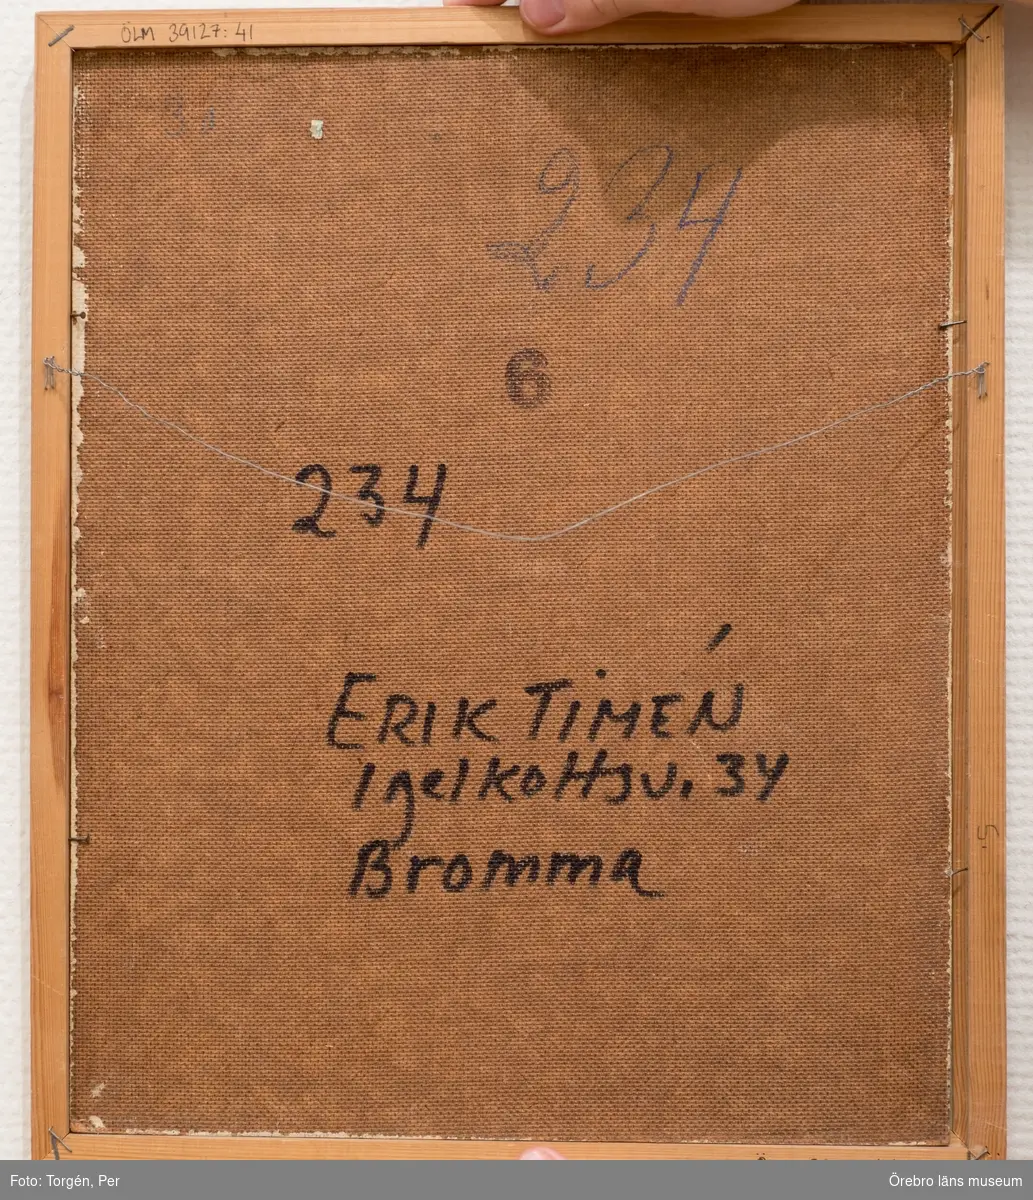 ÖLM 39127:41
30
234
6
234
ERIK TIMÉN
Igelkottsv. 34
Bromma
5
Foto: Torgén, Per
Örebro läns museum